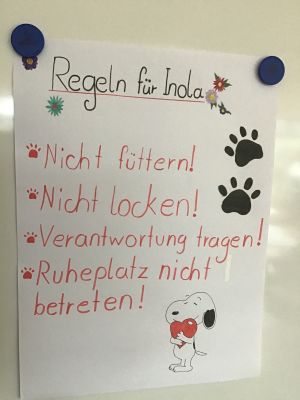 Regeln für Inola
Nicht füttern!
Nicht locken!
Verantwortung tragen!
Ruheplatz nicht
betreten!